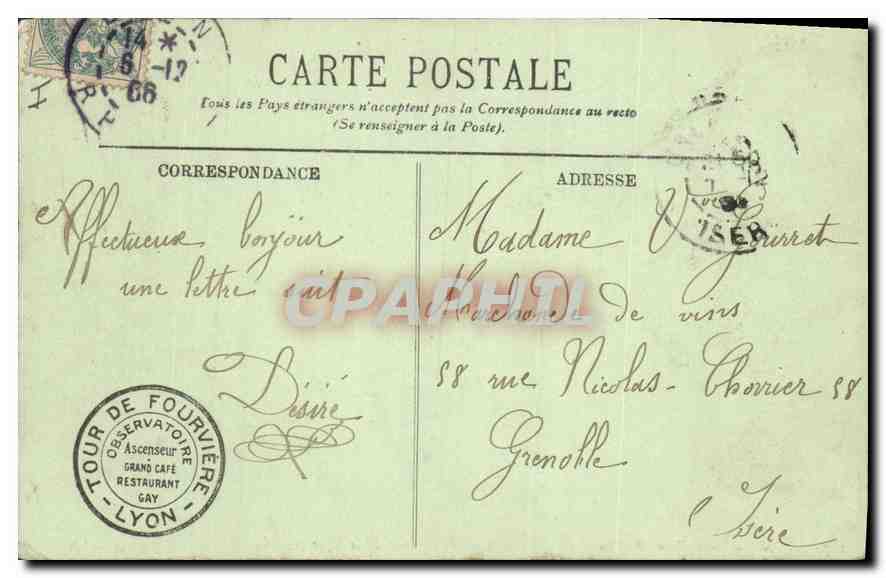 CARTE POSTALE
Tous les Pays étrangers n'acceptent pas la Correspondance au recto
(Se renseigner à la Poste).
CORRESPONDANCE
Affectueux bonjour
une lettre suit
Désiré
TOUR DE FOURVIÈRE
OBSERVATOIRE
Ascenseur
GRAND CAFÉ
RESTAURANT
GAY
- LYON -
ADRESSE
Madame Vve
Marchande de vins
58 rue Nicolas-Chorier 58
Grenoble
Isère
14
6 -12
06
ISER
CPAPHIL